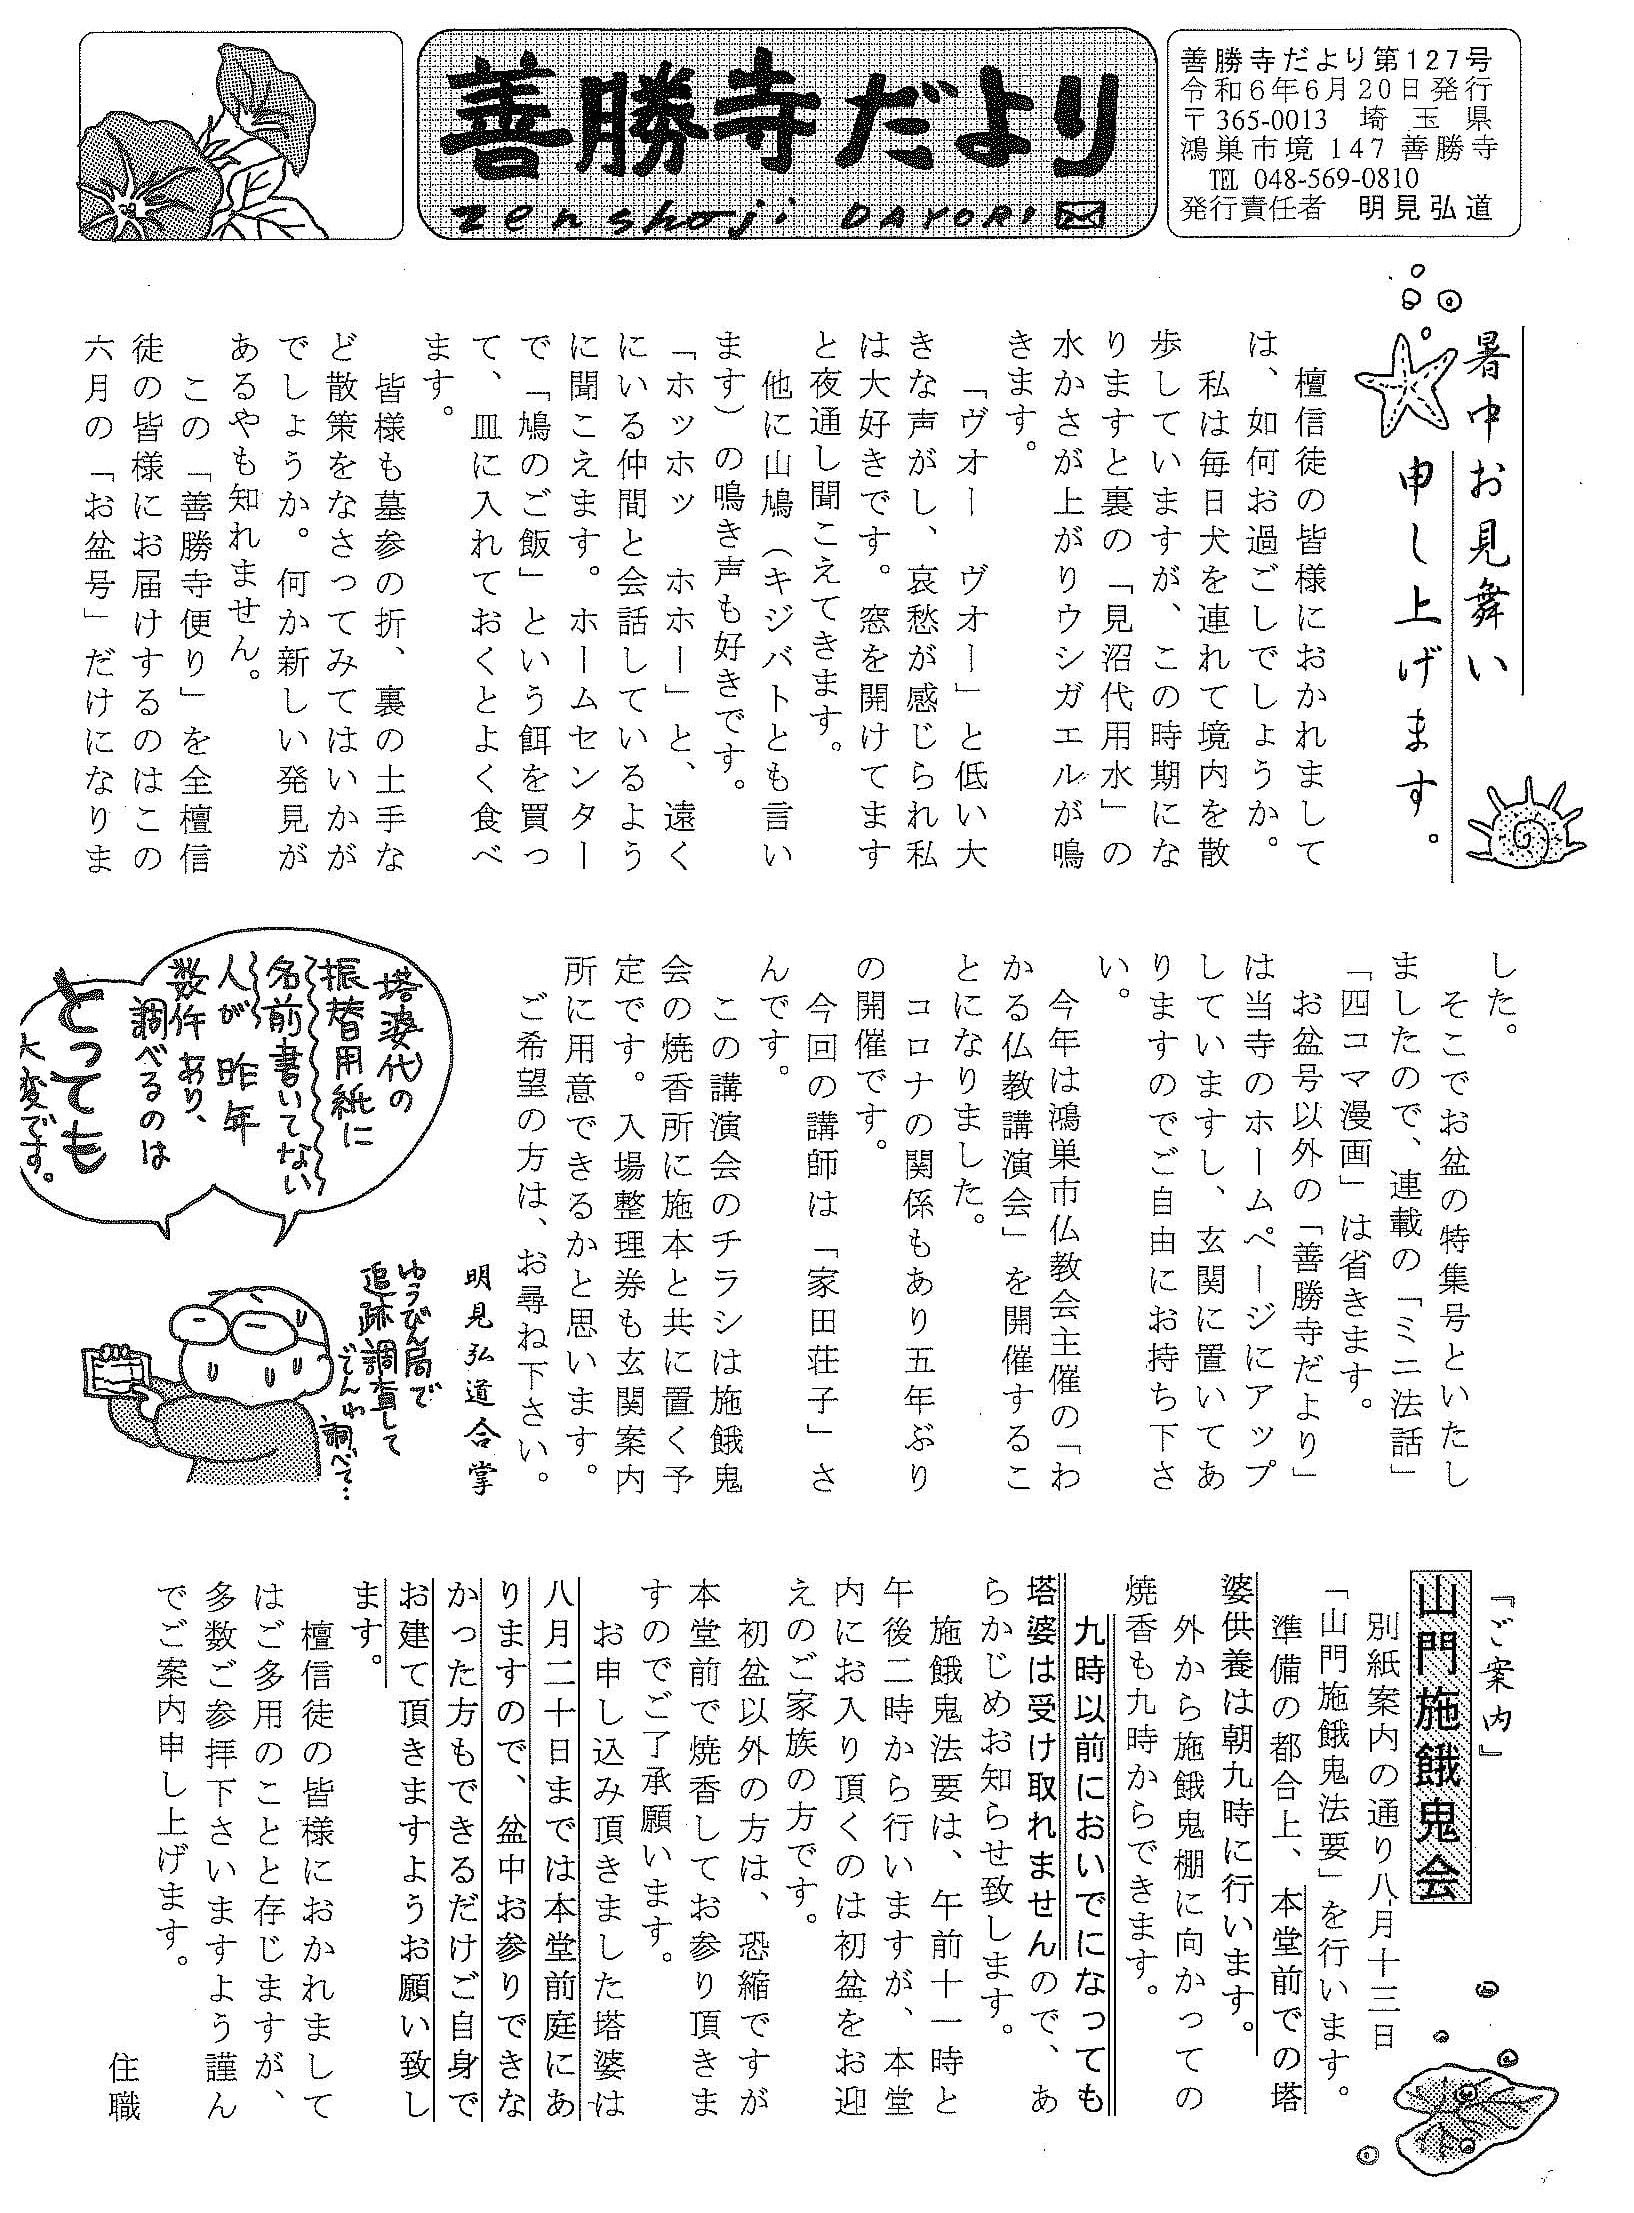 善勝寺だより
zenshoji DAYORI
善勝寺だより第127号
令和6年6月20日発行
〒365-0013 埼玉県
鴻巣市境147善勝寺
℡ 048-569-0810
発行責任者 明見弘道
暑中お見舞い
申し上げます。
檀信徒の皆様におかれまして
は、如何お過ごしでしょうか。
私は毎日犬を連れて境内を散
歩していますが、この時期にな
りますと裏の「見沼代用水」の
水かさが上がりウシガエルが鳴
きます。
「ヴオー ヴオー」と低い大
きな声がし、哀愁が感じられ私
は大好きです。窓を開けてます
と夜通し聞こえてきます。
他に山鳩(キジバトとも言い
ます)の鳴き声も好きです。
「ホッホッ ホホー」と、遠く
にいる仲間と会話しているよう
に聞こえます。ホームセンター
で「鳩のご飯」という餌を買っ
て、皿に入れておくとよく食べ
ます。
皆様も墓参の折、裏の土手な
ど散策をなさってみてはいかが
でしょうか。何か新しい発見が
あるやも知れません。
この「善勝寺便り」を全檀信
徒の皆様にお届けするのはこの
六月の「お盆号」だけになりま
した。
そこでお盆の特集号といたし
ましたので、連載の「ミニ法話」
「四コマ漫画」は省きます。
お盆号以外の「善勝寺だより」
は当寺のホームページにアップ
していますし、玄関に置いてあ
りますのでご自由にお持ち下さ
い。
今年は鴻巣市仏教会主催の「わ
かる仏教講演会」を開催するこ
とになりました。
コロナの関係もあり五年ぶり
の開催です。
今回の講師は「家田荘子」さ
んです。
この講演会のチラシは施餓鬼
会の焼香所に施本と共に置く予
定です。入場整理券も玄関案内
所に用意できるかと思います。
ご希望の方は、お尋ね下さい。
明見弘道合掌
塔婆代の
振替用紙に
名前書いてない
人が 昨年
数件あり、
調べるのは
とっても
大変です。
ゆうびん局で
追跡調査して
でんわ調べて…
『ご案内』
山門施餓鬼会
別紙案内の通り八月十三日
「山門施餓鬼法要」を行います。
準備の都合上、本堂前での塔
婆供養は朝九時に行います。
外から施餓鬼棚に向かっての
焼香も九時からできます。
九時以前においでになっても
塔婆は受け取れませんので、あ
らかじめお知らせ致します。
施餓鬼法要は、午前十一時と
午後二時から行いますが、本堂
内にお入り頂くのは初盆をお迎
えのご家族の方です。
初盆以外の方は、恐縮ですが
本堂前で焼香してお参り頂きま
すのでご了承願います。
お申し込み頂きました塔婆は
八月二十日までは本堂前庭にあ
りますので、盆中お参りできな
かった方もできるだけご自身で
お建て頂きますようお願い致し
ます。
檀信徒の皆様におかれまして
はご多用のことと存じますが、
多数ご参拝下さいますよう謹ん
でご案内申し上げます。
住職